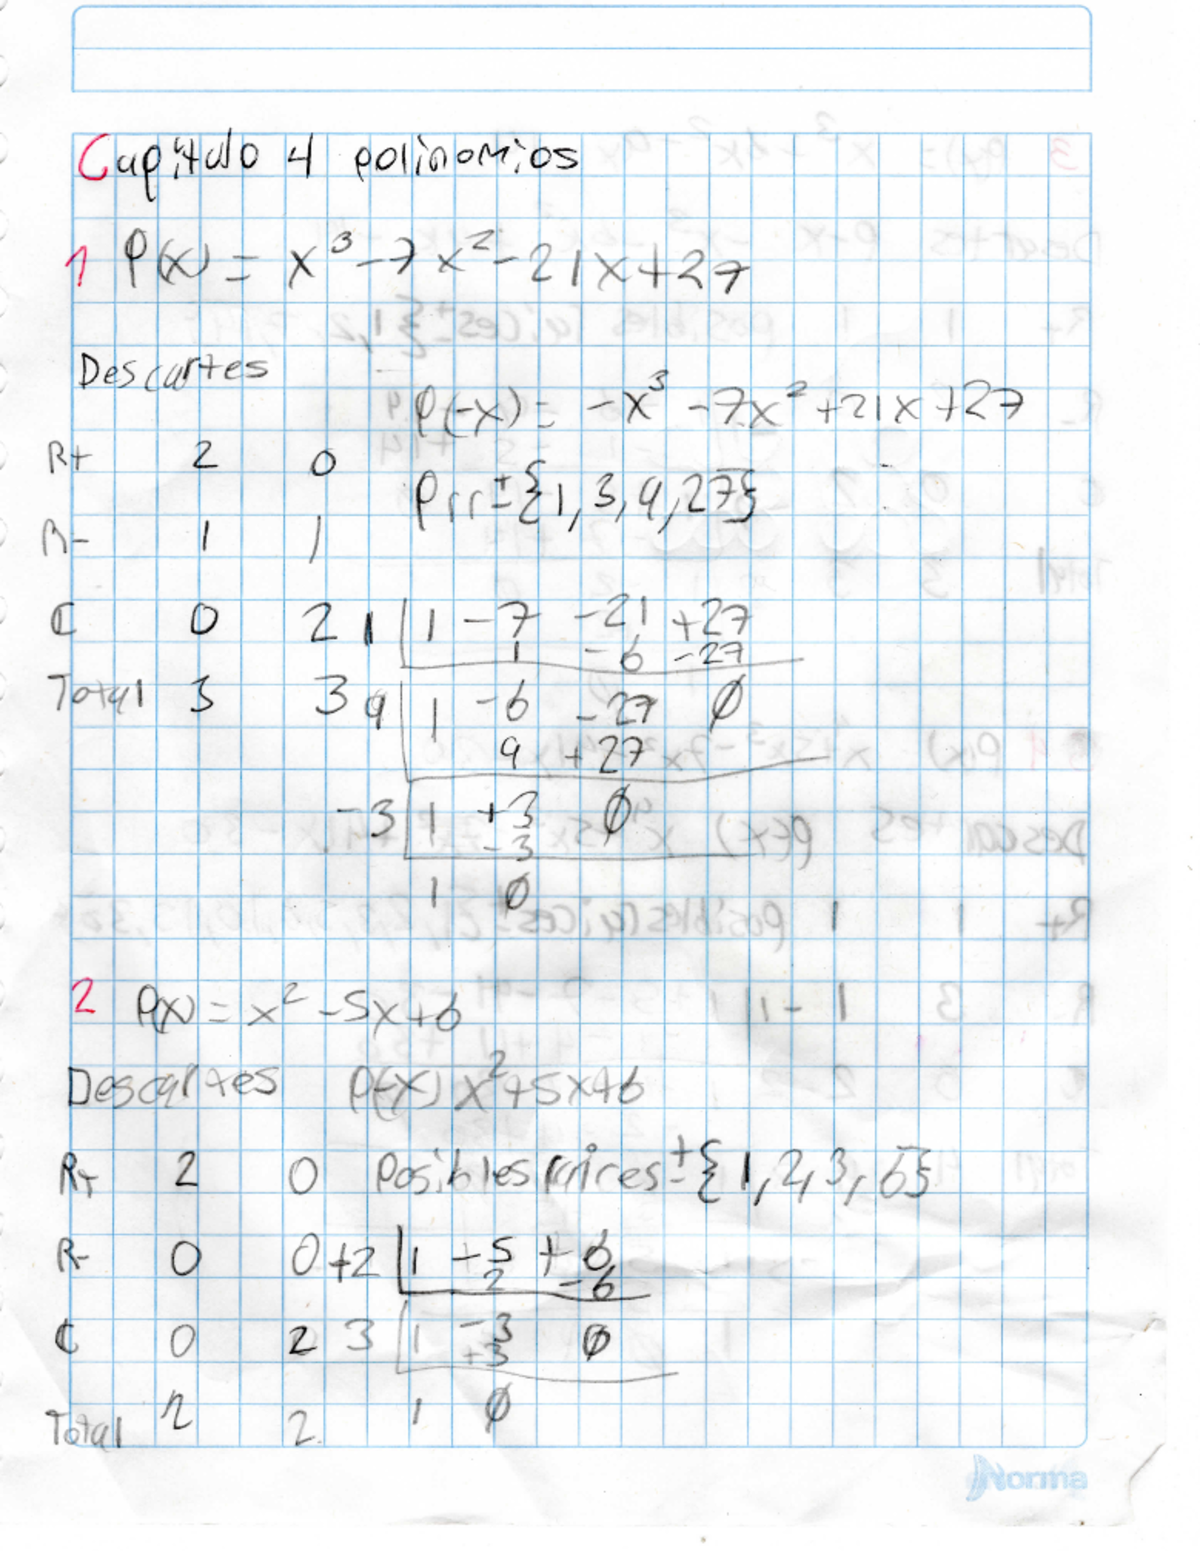 Capitulo 4 polinomios
1 P(x) = x³ - 7x² - 21x + 27
Descartes
P(-x) = -x³ - 7x² + 21x + 27
R+ 2 0
Prr ± {1, 3, 9, 27}
R- 1 1
C 0 2 1 | 1 - 7 - 21 + 27
1 - 6 - 27
Total 3 3 9 | 1 - 6 - 27 0
9 + 27
-3 | 1 + 3 0
- 3
1 0
2 P(x) = x² - 5x + 6
Descartes P(-x) x² + 5x + 6
R+ 2 0 Posibles raices ± {1, 2, 3, 6}
R- 0 0 +2 | 1 - 5 + 6
2 - 6
C 0 2 3 | 1 - 3 0
+3
Total 2 2 1 0
Norma